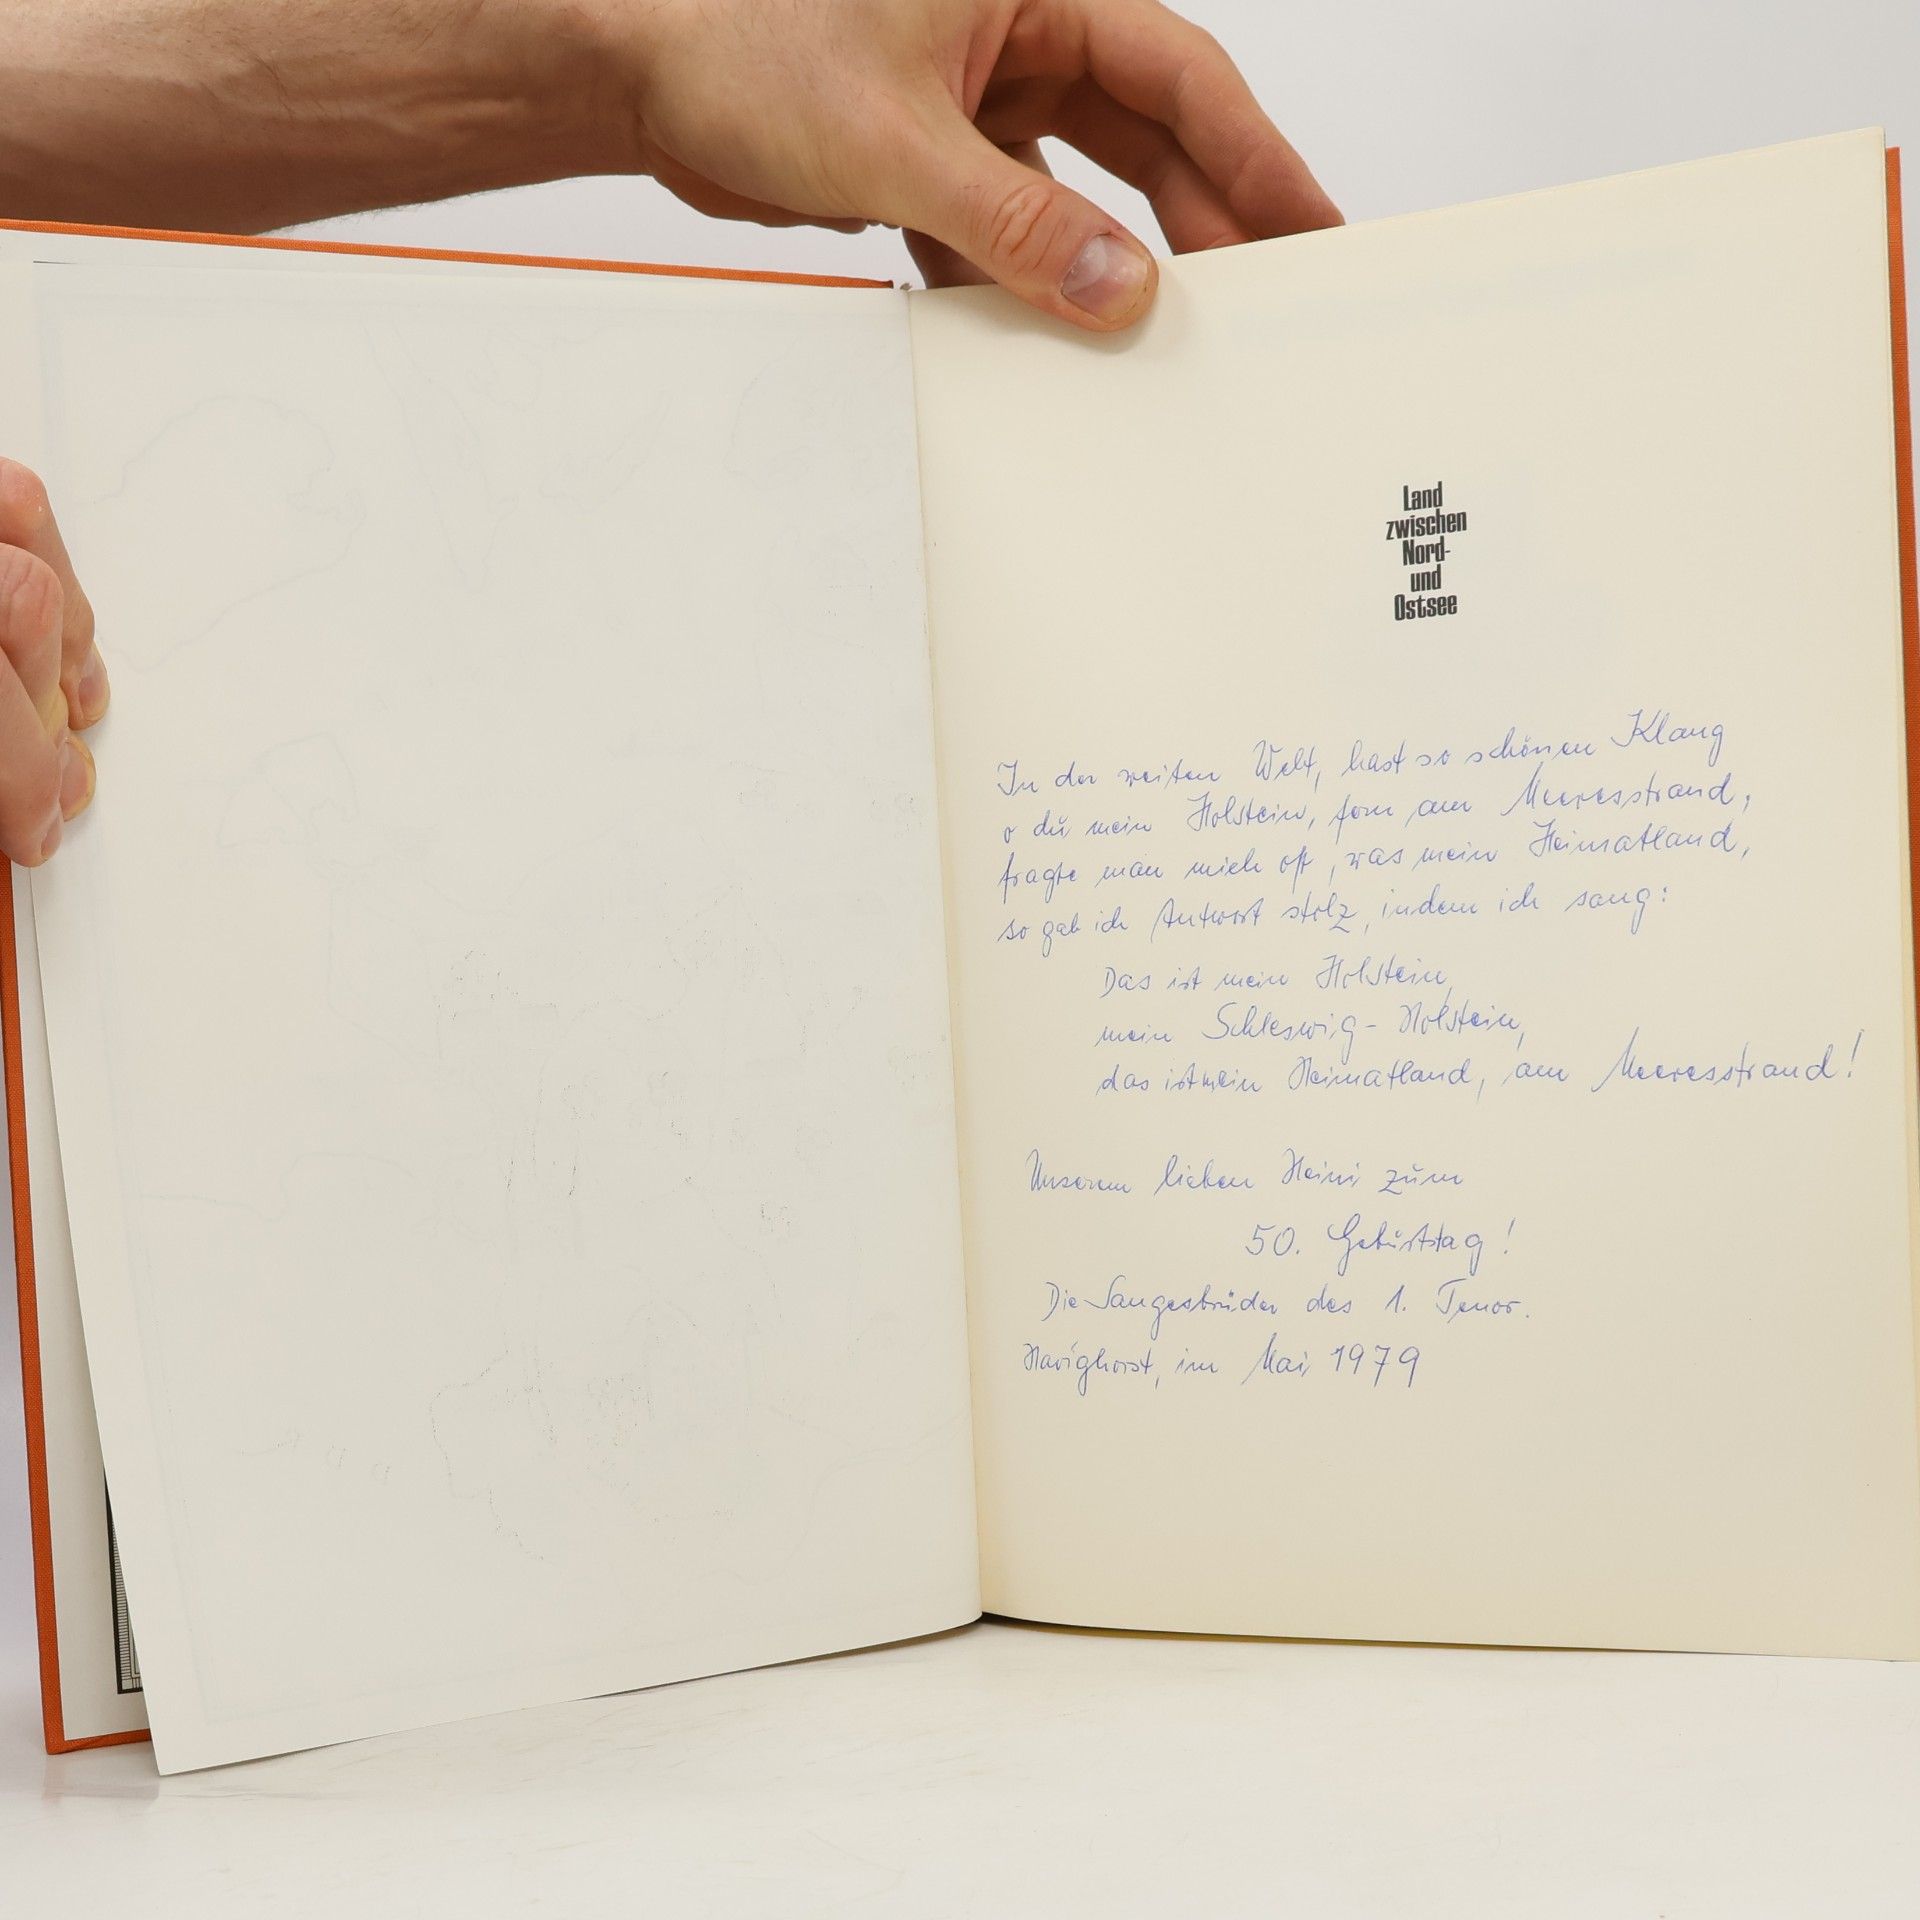 Land
zwischen
Nord-
und
Ostsee
In der weiten Welt, hast so schönen Klang
o du mein Holstein, fern am Meeresstrand,
fragte man mich oft, was mein Heimatland,
so gab ich Antwort stolz, indem ich sang:
Das ist mein Holstein,
mein Schleswig-Holstein,
das ist mein Heimatland, am Meeresstrand!
Unserem lieben Heini zum
50. Geburtstag!
Die Sangesbrüder des 1. Tenor.
Havighorst, im Mai 1979